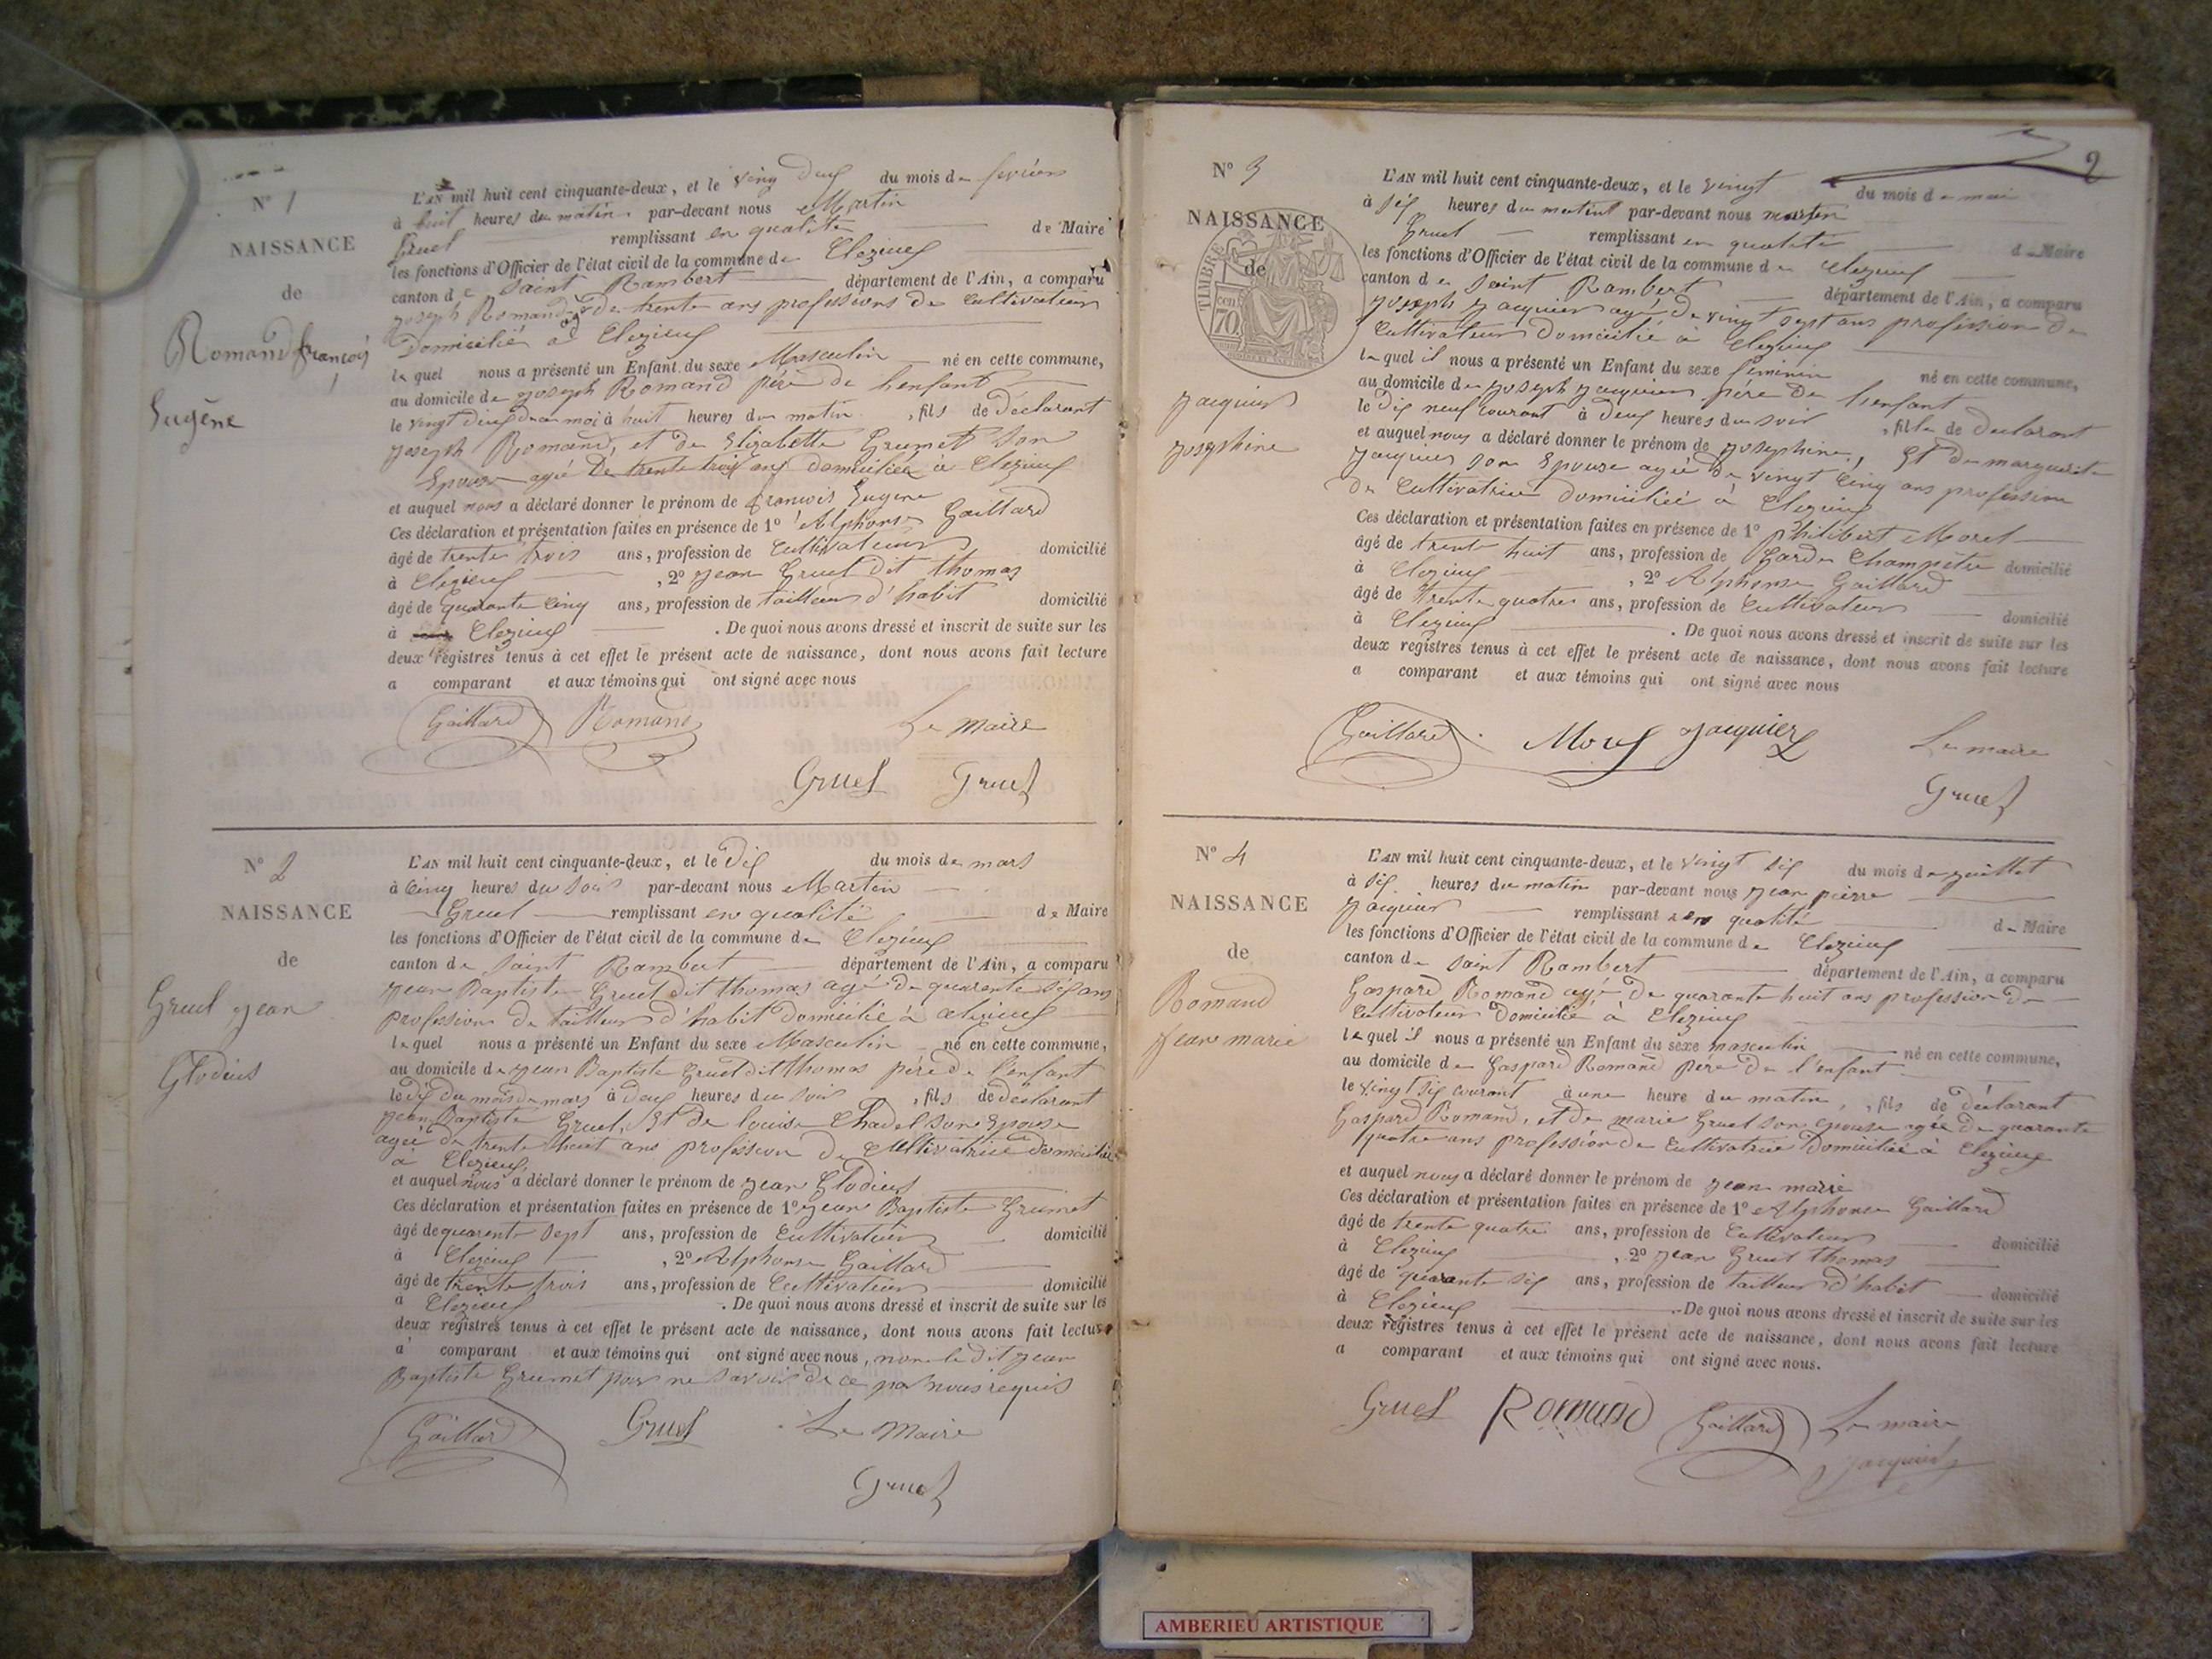 N° 1
NAISSANCE
de
Romand françois
Eugène
L'AN mil huit cent cinquante-deux, et le vingt deux du mois de fevrier
à huit heures du matin par-devant nous Martin
Gruel remplissant en qualité de Maire
les fonctions d'Officier de l'état civil de la commune de Clezieux
canton de Saint Rambert département de l'Ain, a comparu
joseph Romand de trente ans professions de Cultivateur
Domicilié à Clezieux
lequel nous a présenté un Enfant du sexe Masculin né en cette commune,
au domicile de joseph Romand père de l'enfant
le vingt deux de ce moi à huit heures du matin, fils de déclarant
joseph Romand, et de Elizabette Grumet son
Epouse agée de trente trois ans domiciliée à Clezieux
et auquel nous a déclaré donner le prénom de francois Eugene
Ces déclaration et présentation faites en présence de 1° Alphonse Gaillard
âgé de trente trois ans, profession de Cultivateur domicilié
à Clezieux, 2° jean Gruel dit thomas
âgé de quarante cinq ans, profession de tailleur d'habit domicilié
à Clezieux. De quoi nous avons dressé et inscrit de suite sur les
deux registres tenus à cet effet le présent acte de naissance, dont nous avons fait lecture
a comparant et aux témoins qui ont signé avec nous
Gaillard Romand Le maire
Gruel Gruel
N° 2
NAISSANCE
de
Gruel jean
Glodius
L'AN mil huit cent cinquante-deux, et le dix du mois de mars
à Cinq heures du soir par-devant nous Martin
Gruel remplissant en qualité de Maire
les fonctions d'Officier de l'état civil de la commune de Clezieux
canton de Saint Rambert département de l'Ain, a comparu
jean Baptiste Gruel dit thomas agé de quarente six ans
profession de tailleur d'habit domicilié à Clezieux
lequel nous a présenté un Enfant du sexe Masculin né en cette commune,
au domicile de jean Baptiste Gruel dit thomas père de l'enfant
le dix du mois de mars à deux heures du soir, fils de déclarant
jean Baptiste Gruel, Et de louise Chadel son Epouse
agée de trente huit ans profession de Cultivatrice domiciliée
à Clezieux
et auquel nous a déclaré donner le prénom de jean Glodius
Ces déclaration et présentation faites en présence de 1° jean Baptiste Grumet
âgé de quarente sept ans, profession de Cultivateur domicilié
à Clezieux, 2° Alphonse Gaillard
âgé de trente trois ans, profession de Cultivateur domicilié
a Clezieux. De quoi nous avons dressé et inscrit de suite sur les
deux registres tenus à cet effet le présent acte de naissance, dont nous avons fait lecture
a comparant et aux témoins qui ont signé avec nous, non le dit jean
Baptiste Grumet pour ne savoir de ce par nous requis
Gaillard Gruel Le Maire
Gruel
2
N° 3
NAISSANCE
de
TIMBRE
70
jacquier
josephine
L'AN mil huit cent cinquante-deux, et le vingt du mois de mai
à six heures du matin par-devant nous martin
Gruel remplissant en qualité de Maire
les fonctions d'Officier de l'état civil de la commune de Clezieux
canton de Saint Rambert département de l'Ain, a comparu
joseph jacquier agé de vingt sept ans profession de
Cultivateur Domicilié à Clezieux
lequel il nous a présenté un Enfant du sexe féminin né en cette commune,
au domicile de joseph jacquier père de l'enfant
le dix neuf courant à deux heures du soir, fille de declarant
et auquel nous a déclaré donner le prénom de josephine, Et de marguerite
jacquier son Epouse agée de vingt cinq ans profession
de Cultivatrice domiciliée à Clezieux
Ces déclaration et présentation faites en présence de 1° philibert Morel
âgé de trente huit ans, profession de Garde Champetre domicilié
à Clezieux, 2° Alphonse Gaillard
âgé de trente quatre ans, profession de Cultivateur domicilié
à Clezieux. De quoi nous avons dressé et inscrit de suite sur les
deux registres tenus à cet effet le présent acte de naissance, dont nous avons fait lecture
a comparant et aux témoins qui ont signé avec nous
Gaillard Morel jacquier Le maire
Gruel
N° 4
NAISSANCE
de
Romand
jean marie
L'AN mil huit cent cinquante-deux, et le vingt six du mois de juillet
à six heures du matin par-devant nous jean pierre
jacquier remplissant en qualité de Maire
les fonctions d'Officier de l'état civil de la commune de Clezieux
canton de Saint Rambert département de l'Ain, a comparu
Gaspard Romand agé de quarante huit ans profession de
Cultivateur Domicilié à Clezieux
lequel il nous a présenté un Enfant du sexe masculin né en cette commune,
au domicile de Gaspard Romand père de l'enfant
le vingt six courant à une heure du matin, fils de déclarant
Gaspard Romand, et de marie Gruel son epouse agée de quarante
quatre ans profession de Cultivatrice Domiciliée à Clezieux
et auquel nous a déclaré donner le prénom de jean marie
Ces déclaration et présentation faites en présence de 1° Alphonse Gaillard
âgé de trente quatre ans, profession de Cultivateur domicilié
à Clezieux, 2° jean Gruel thomas
âgé de quarante six ans, profession de tailleur d'habit domicilié
à Clezieux. De quoi nous avons dressé et inscrit de suite sur les
deux registres tenus à cet effet le présent acte de naissance, dont nous avons fait lecture
a comparant et aux témoins qui ont signé avec nous.
Gruel Romand Gaillard Le maire
jacquier
AMBERIEU ARTISTIQUE